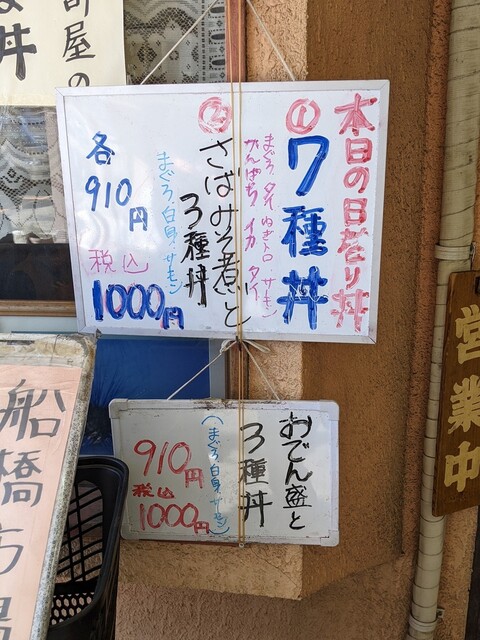 本日の日がわり丼
① 7種丼
まぐろ タイ ねぎトロ サーモン
かんぱち イカ タイ
② さばみそ煮と
3種丼
まぐろ・白身・サーモン
各
910円
税込
1000円
おでん盛と
3種丼
(まぐろ・白身・サーモン)
910円
税込
1000円
営業中
船橋市場
屋の
丼